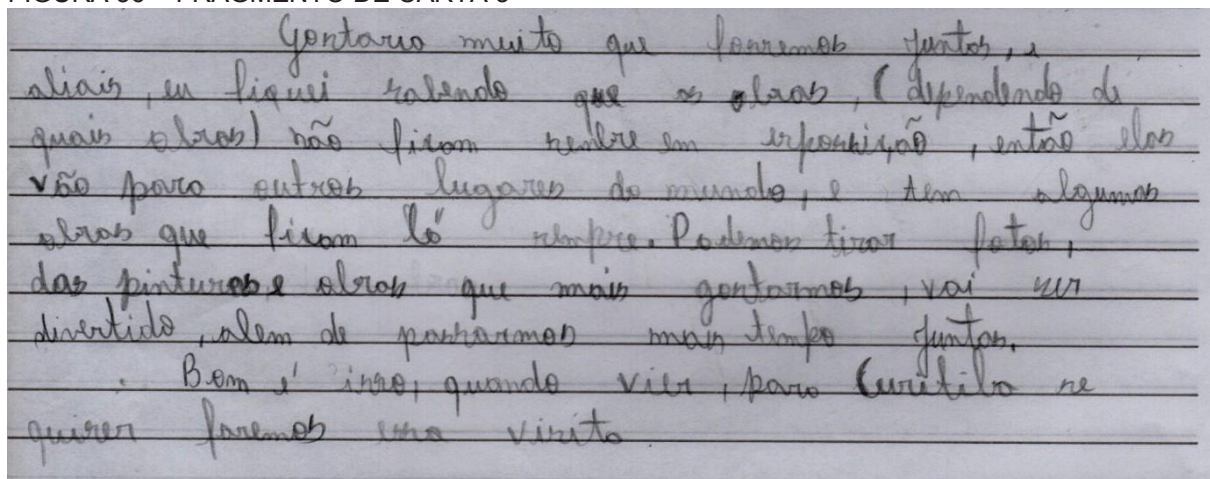 FIGURA – FRAGMENTO DE CARTA
Gostaria muito que fossemos juntos, e
aliais, eu fiquei sabendo que as obras, (dependendo de
quais obras) não ficam sembre em , então elas
vão para outros lugares do mundo, e tem algumas
obras que ficam lá sempre. Podemos tirar fotos,
das pinturas e obras que mais gostarmos, vai ser
divertido, alem de passarmos mais tempo juntos.
Bom é isso, quando vier, para Curitiba se
quiser faremos essa visita